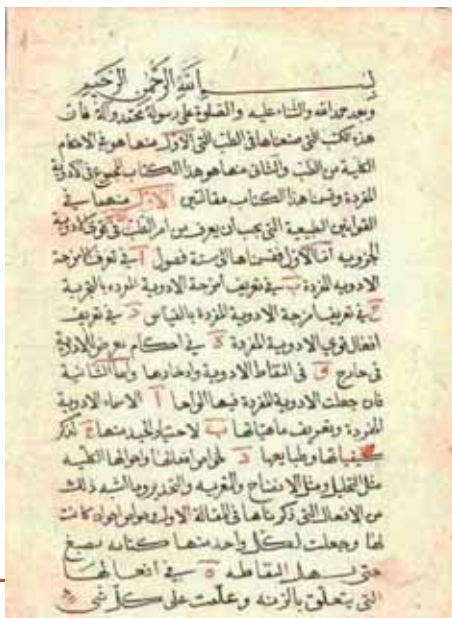 بسم الله الرحمن الرحيم
وبعد حمد الله والثناء عليه والصلوة على رسوله محمد وآله فان
هذه الكتب التي صنعناها في الطب التي الاول منها هو في الاحكام
الكلية من الطب والثاني منها هو هذا الكتاب المجموع في الادوية
المفردة وقسمنا هذا الكتاب مقالتين الاولى منهما في
القوانين الطبيعية التي يجب ان يعرف من امر الطب في الادوية
الجزوية اما الاول فقسمناها الى ستة فصول ا في تعرف امزجة
الادوية المفردة ب في تعريف امزجة الادوية المفرده بالتجربة
ج في تعريف امزجة الادوية المفردة بالقياس د في تعريف
افعال قوي الادوية المفردة ه في احكام يعرض الادوية
في خارج و في التقاط الادوية وادخارها واما الثانية
فان جعلت الادوية المفردة فيها الواحا ا الاسماء الادوية
المفردة وتعريف ماهياتها ب لاختيار الجيد منها ج لذكر
كيفياتها وطبايعها د لخواص افعالها واحوالها الكلية
مثل التحليل ومثل الانضاج والتغرية والتخدير وما اشبه ذلك
من الافعال التي ذكرناها في المقالة الاولى وخواص اخرى ان كانت
لها وجعلت لكل واحد منها كتابه بصبغ
حتى يسهل التقاطه ه في افعالها
التي يتعلق بالزينه وعلمت على كل شي